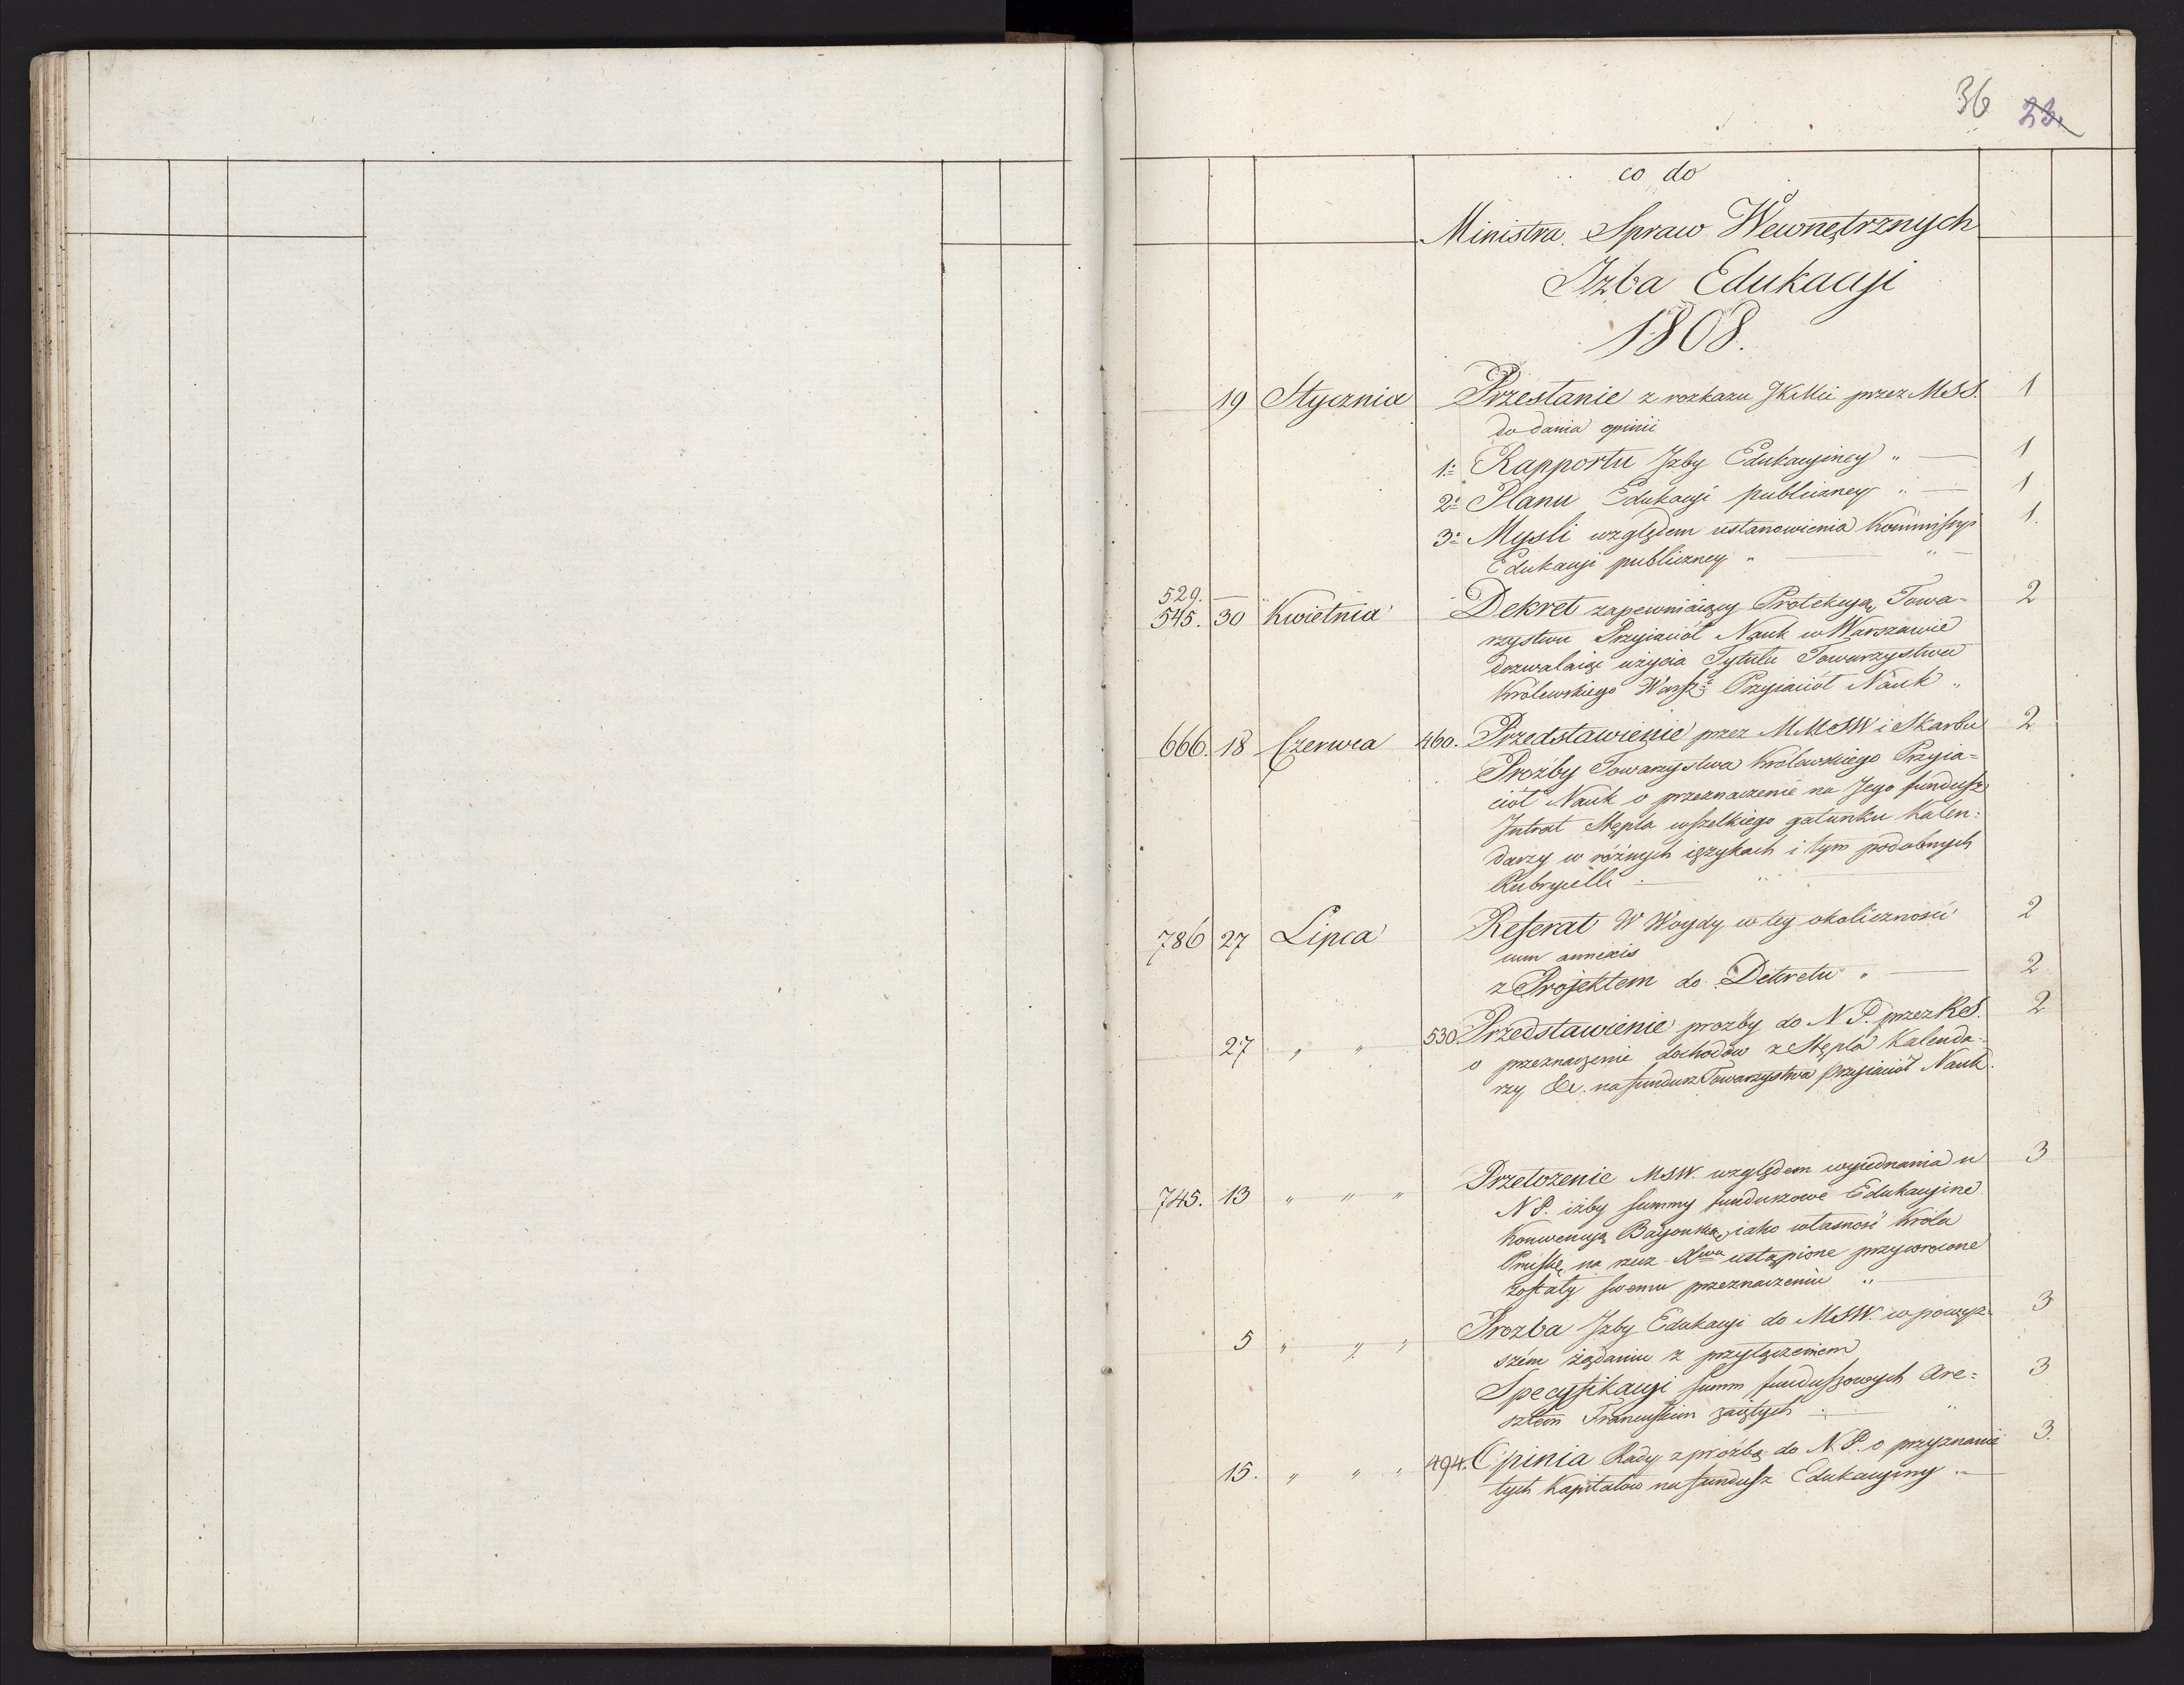 36 23.
co do
Ministra Spraw Wewnętrznych
Izba Edukacyi
1808.
19 Stycznia Przesłanie z rozkazu JKMci przez MSS. 1
do dania opinii
1o Rapportu Izby Edukacyiney " — 1
2o Planu Edukacyi publiczney " — 1
3o Mysli względem ustanowienia Kommissyi 1.
Edukacyi publiczney " — " —
529. —
545. 30 Kwietnia Dekret zapewniaiący Protekcyą Towa= 2
rzystwu Przyiaciół Nauk w Warszawie
dozwalaiąc użycia Tytułu Towarzystwa
Królewskiego Warszo Przyiaciół Nauk "
666. 18 Czerwca 460. Przedstawienie przez MMSW i Skarbu 2
Prozby Towarzystwa Królewskiego Przyia=
ciół Nauk o przeznaczenie na Jego fundusz
Intrat Stępla wszelkiego gatunku Kalen=
darzy w różnych ięzykach i tym podobnych
Rubrycelli — " —
786 27 Lipca Referat W Woydy w tey okoliczności 2
cum annexis
z Projektem do Dekretu " — 2
27 " " 530. Przedstawienie prozby do N P. przez RS. 2
o przeznaczenie dochodów z Stępla Kalenda=
rzy &c. na fundusz Towarzystwa przyiaciół Nauk.
745. 13 " " " Przełożenie MSW. względem wyiednania u 3
N P. iżby summy funduszowe Edukacyine
Konwencyą Bayońską, iako własność Króla
Pruskie na rzecz Nwa ustąpione przywrócone
zostały swemu przeznaczeniu " —
5 " " " Prozba Izby Edukacyi do MSW. w powyz= 3
szém żądaniu z przyłączeniem
Specyfikacyi summ funduszowych Are= 3
sztem Francuskim zaiętych — "
15. " " " 494. Opinia Rady z prozbą do N. P. o przyznanie 3.
tych Kapitałów na fundusz Edukacyiny " —